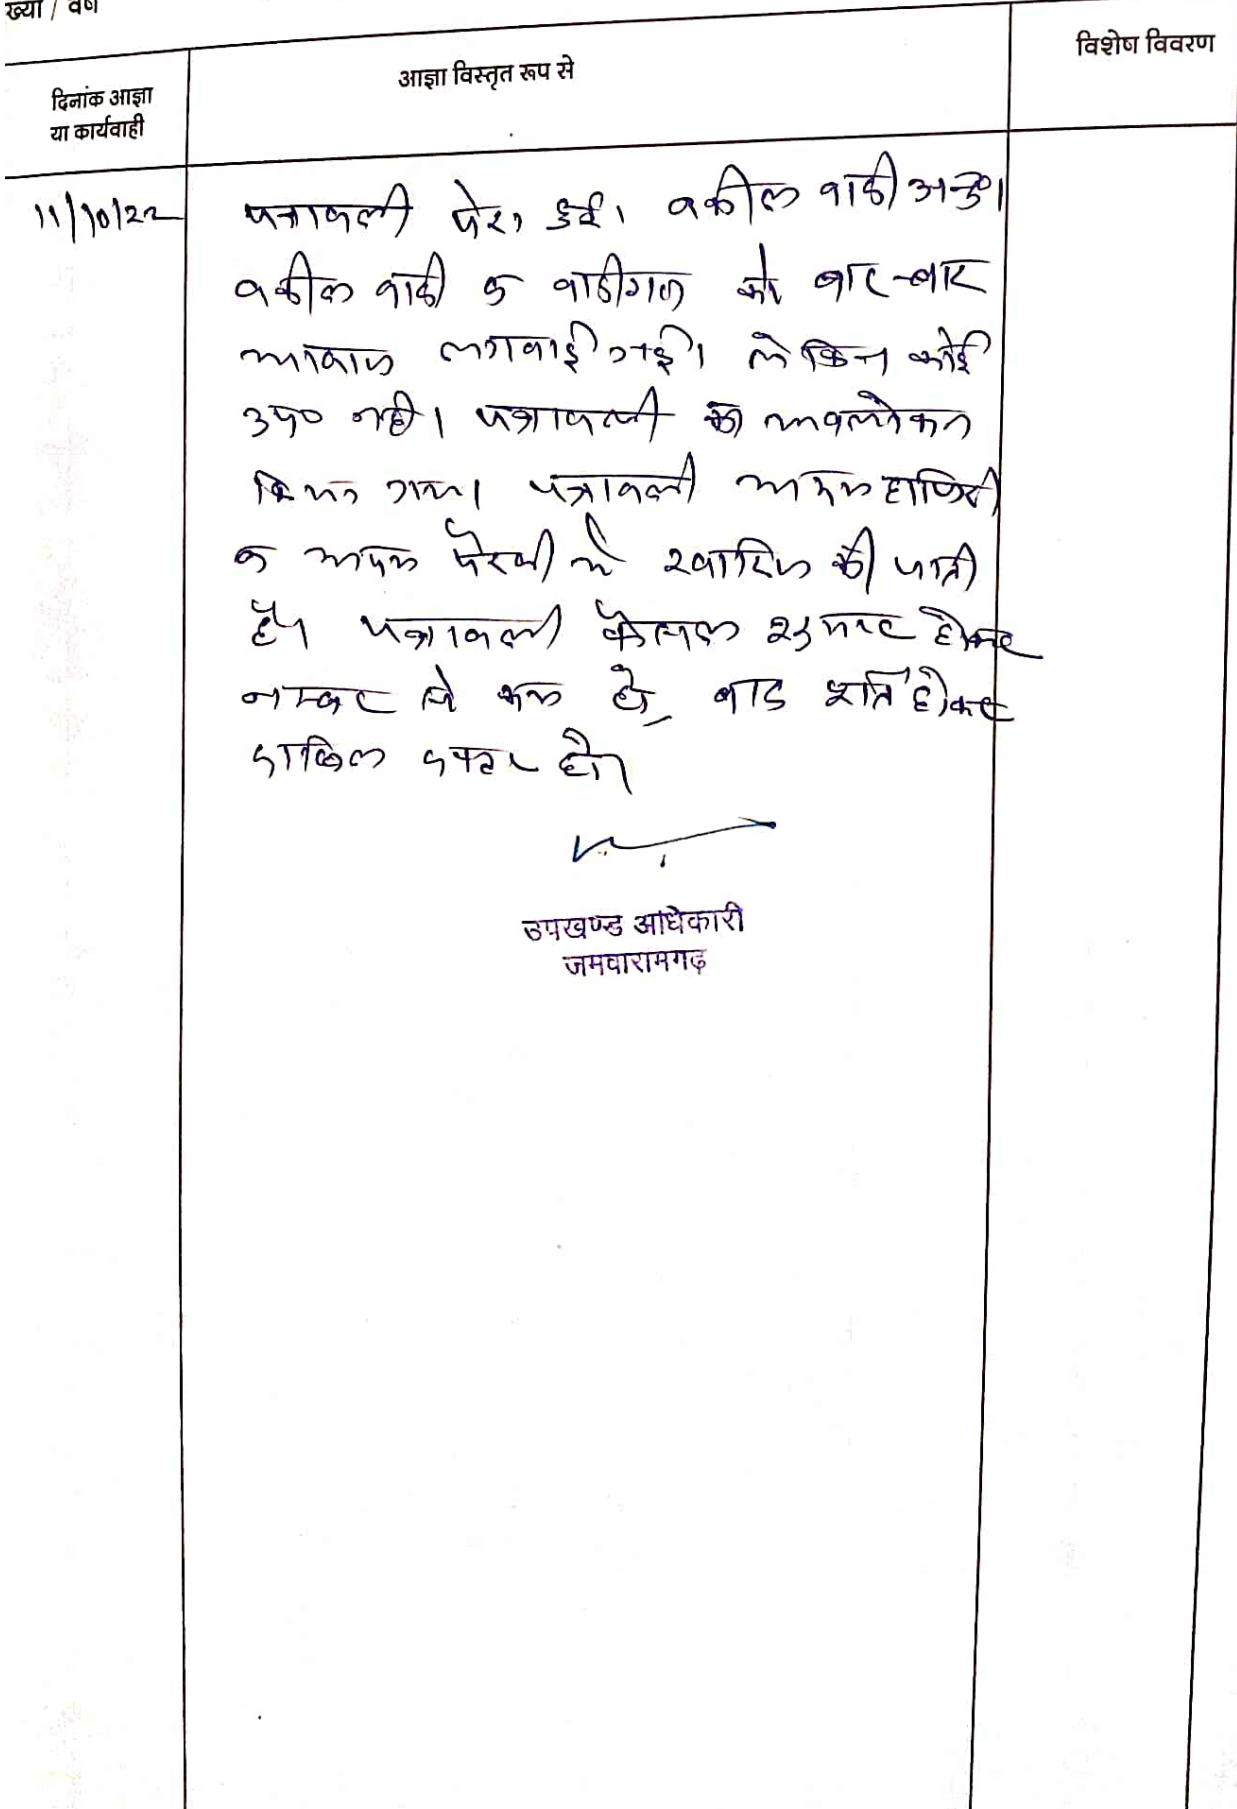 ख्या / वर्ष
दिनांक आज्ञा
या कार्यवाही
आज्ञा विस्तृत रूप से
विशेष विवरण
11/10/22
पत्रावली पेश हुई। वकील वादी अनु०।
वकील वादी व वादीगण को बार-बार
आवाज लगवाई गई। लेकिन कोई
उप० नही। पत्रावली का अवलोकन
किया गया। पत्रावली अदम हाजिरी
व अदम पैरवी में खारिज की जाती
है। पत्रावली फैसल शुमार होकर
नम्बर से कम हो, बाद शर्ति होकर
दाखिल दफ्तर हो।
उपखण्ड अधिकारी
जमवारामगढ़